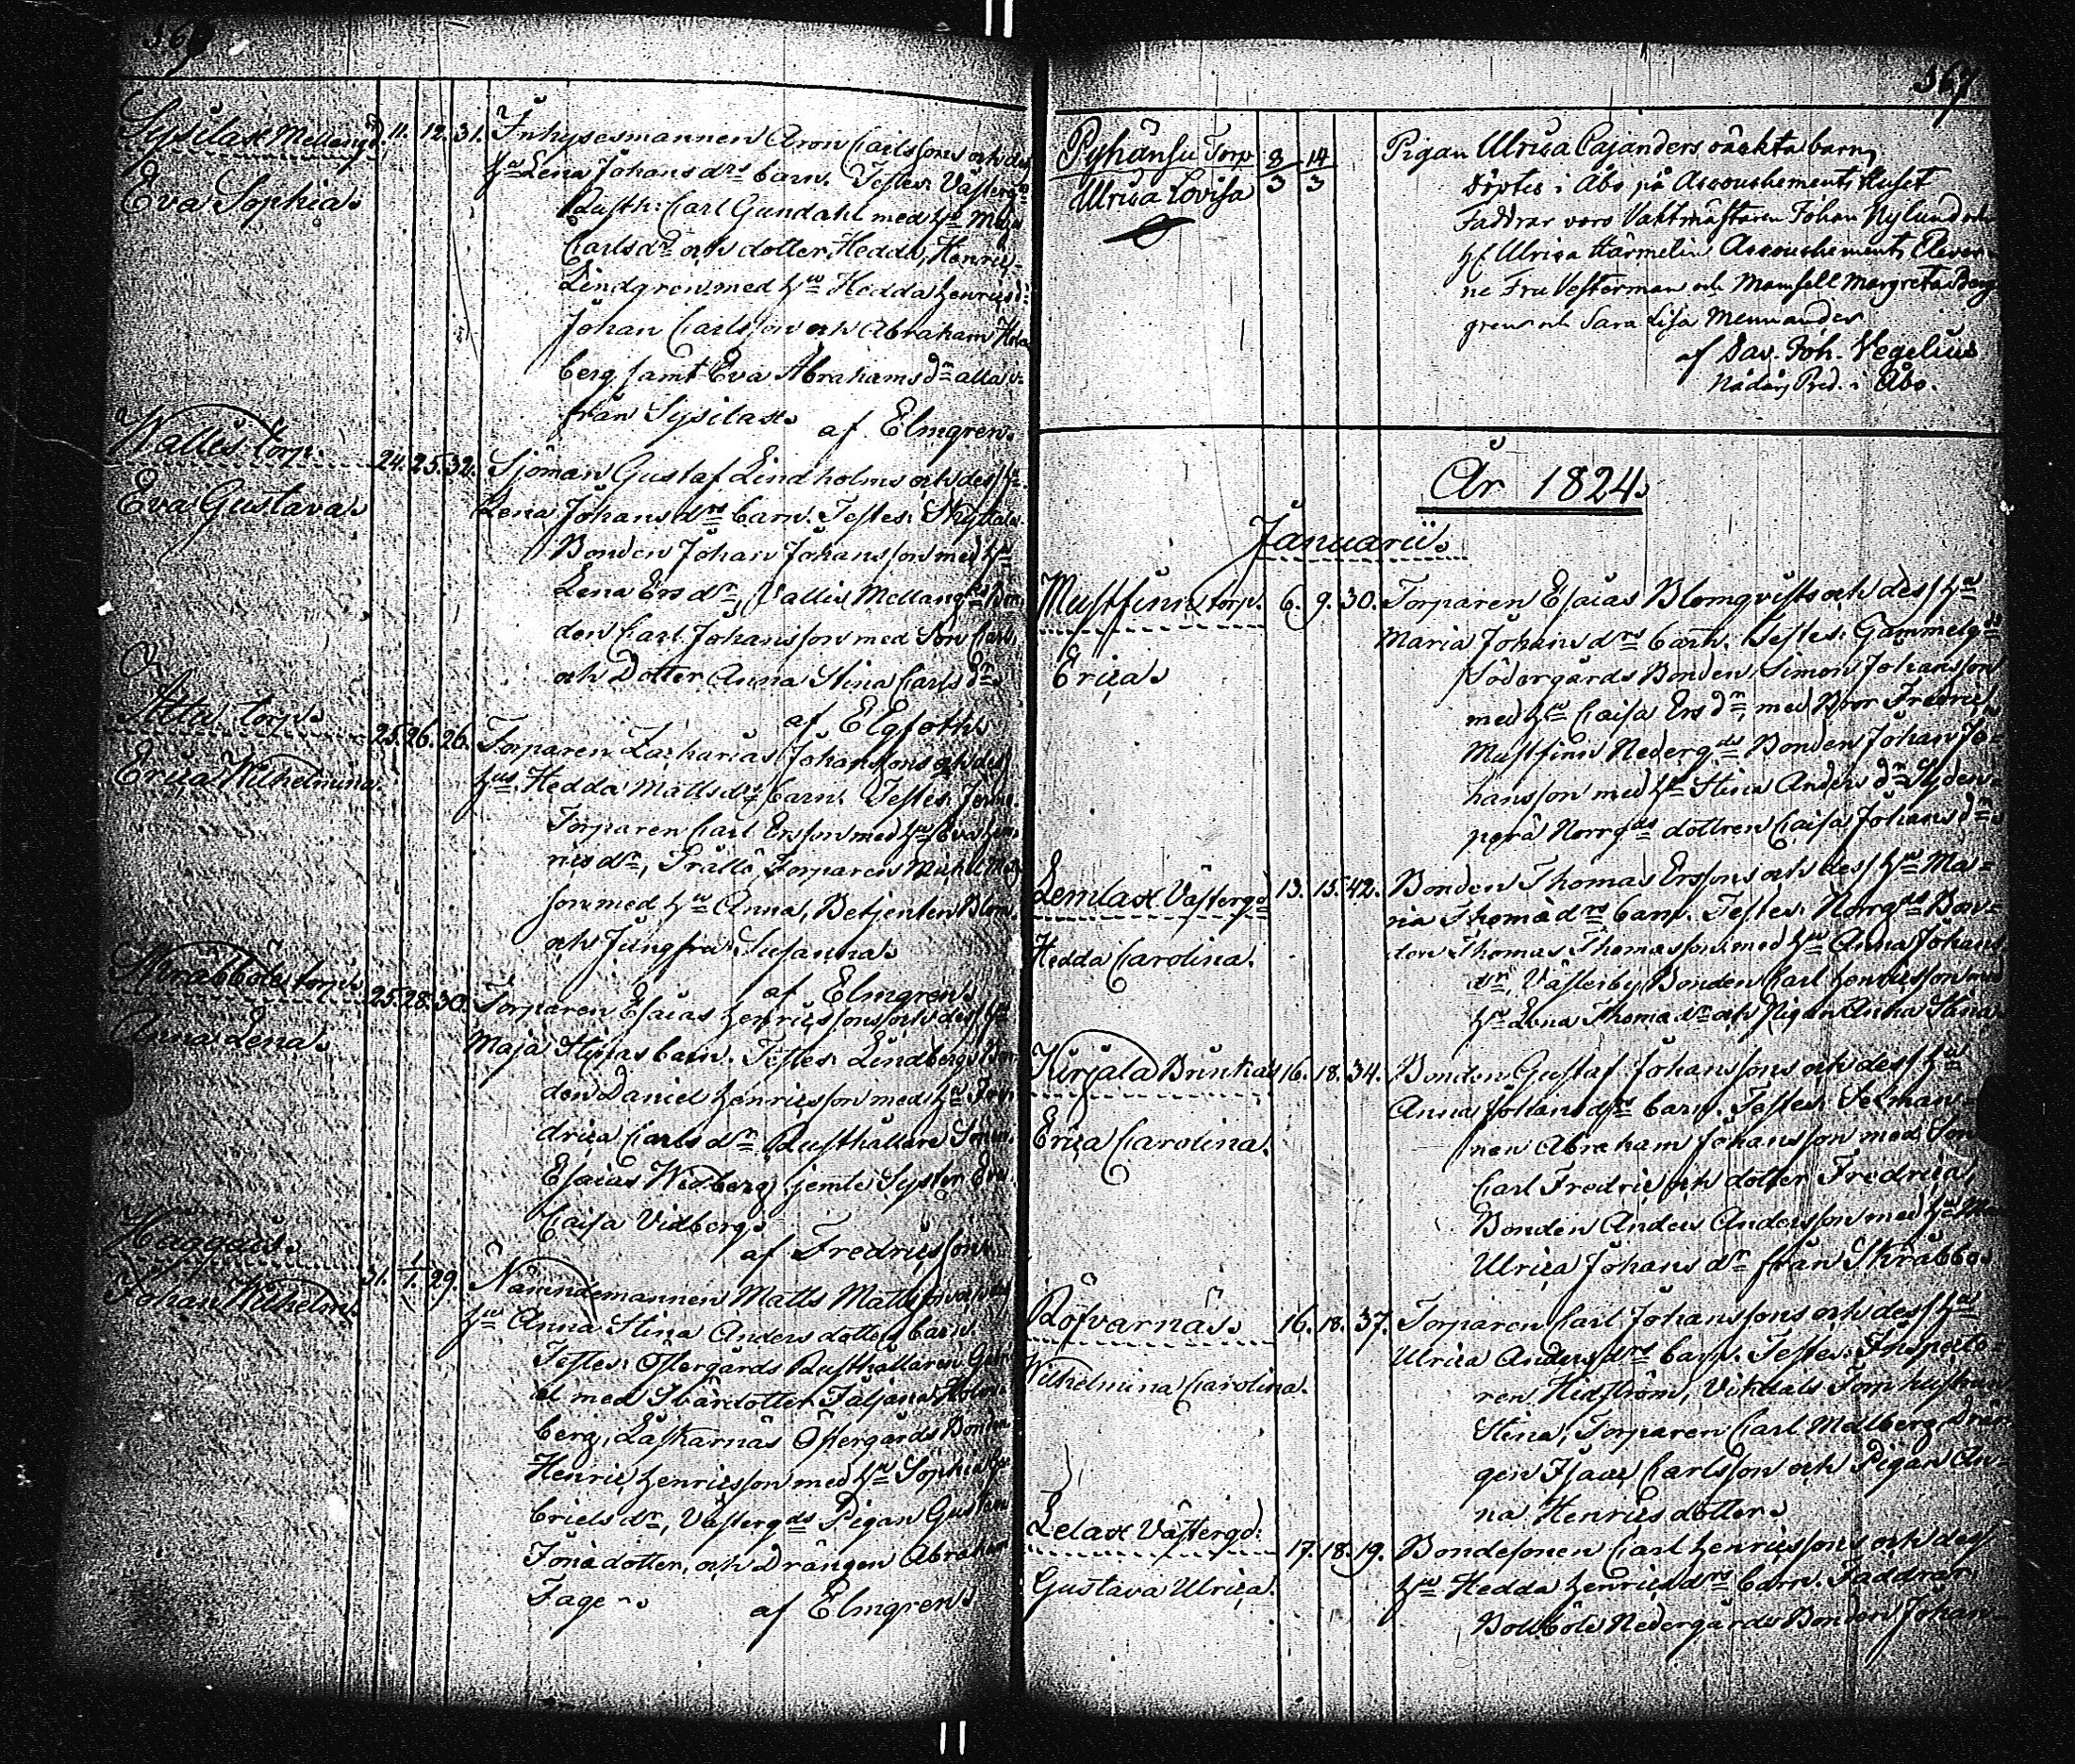 Sysilax Mellangd. 11. 12. 31. Inhysesmannen Aron Carlssons och des
Eva Sophia. hu Lena Johans drs barn. Testes: Västergds
Rusth: Carl Gundahl med hu Maja
Carls dr och dotter Hedda, Henric
Lindgren med hu Hedda Henrics dr
Johan Carlsson och Abraham
berg samt Eva Abrahams dr alla
från Sysilax. af Elmgren.
Wallis torp. 24. 25. 32. Sjöman Gustaf Lindholms och dess hu
Eva Gustava. Lena Johans drs barn. Testes:
Bonden Johan Johansson med hu
Lena Ers dr, Vallis Mellangds Bon
den Carl Johansson med Son Carl,
och Dotter Anna Stina Carls dr.
af Elgfoth.
Attu torp. 25. 26. 26. Torparen Zacharias Johanssons och des
Erica Wilhelmina. hus Hedda Matts drs barn. Testes:
Torparen Carl Ersson med hu Eva Hen
rics dr, Trällö Torparen Michel
son med hu Anna, Betjenten Blom
och Jungfru Susanna.
af Elmgren.
Skräbböle torp. 25. 28. 30. Torparen Esaias Henricssons och dess hu
Anna Lena. Maja Stinas barn. Testes: Lindbergs Bon
den Daniel Henricsson med hu Fre
drica Carls dr, Rusthållare Sonen
Esaias Widberg jemte Syster Eva
Caisa Vidberg.
af Fredricsson.
Haggais. 31. 1/1. 29. Närendemannen Matts Mattssons och des
Johan Wilhelm. hu Anna Stina Anders dotters barn.
Testes: Östergårds Rusthållaren Gabri
el med Svärdotter Taljana Holm
berg, Läskarnäs Östergårds Bonden
Henric Henricsson med hu Sophia Ga
briels dr, Västergds Pigan Gustava
Jona dotter, och Drängen Abraham
Fager. af Elmgren.
367
Pyhänsu Torp 8/3 14/3 Pigan Ulrica Cajanders oäckta barn,
Ulrica Lovisa döptes i Åbo på Accouchements Huset
Faddrar voro Vaktmästaren Johan Nylund och
hf Ulrica Härmelin Accouchements Elever
ne Fru Vesterman och Mamsell Margreta Berg
gren och Sara Lisa Mennander
af Dav. Joh. Vegelius
Nådårs Pred. i Åbo.
År 1824.
Januarii.
Mustfinn torp. 6. 9. 30. Torparen Esaias Blomqvists och dess hu
Maria Johans drs barn. Testes: Gammelgds
Erica. Södergårds Bonden Simon Johansson
med hu Caisa Ers dr, med Bror Fredric
Mustfinn Nedergds Bonden Johan Jo=
hansson med hu Stina Anders dr Syden
perä Norrgds dottren Caisa Johans dr.
Lemlax Västergd 13. 15. 42. Bonden Thomas Erssons och dess hu Ma=
ria Thomä drs barn. Testes: Norrgds Bon=
Hedda Carolina. den Thomas Thomasson med hu Anna Johans
dr, Västerby Bonden Carl Henricsson med
hu Lena Thoma dr och Pigan Anna Stina.
Kirjala Brinkas 16. 18. 34. Bonden Gustaf Johanssons och dess hu
Anna Johans drs barn. Testes: Sexman=
Erica Carolina. nen Abraham Johansson med Son
Carl Fredric och dotter Fredrica,
Bonden Anders Andersson med hu
Ulrica Johans dr från Skräbbö.
Röfvarnäs. 16. 18. 37. Torparen Carl Johanssons och dess hu
Ulrica Anders drs barn. Testes: Inspecto
Wilhelmina Carolina. ren Hidström, Vikdals Torp hustrun
Stina, Torparen Carl Mellberg, Drän
gen Isaac Carlsson och Pigan An=
na Henrics dotter.
Lelax Västergd: 17. 18. 19. Bondesonen Carl Henricssons och des
Gustava Ulrica. hu Hedda Henrics drs barn. Faddrar
Bollböle Nedergårds Bonden Johan